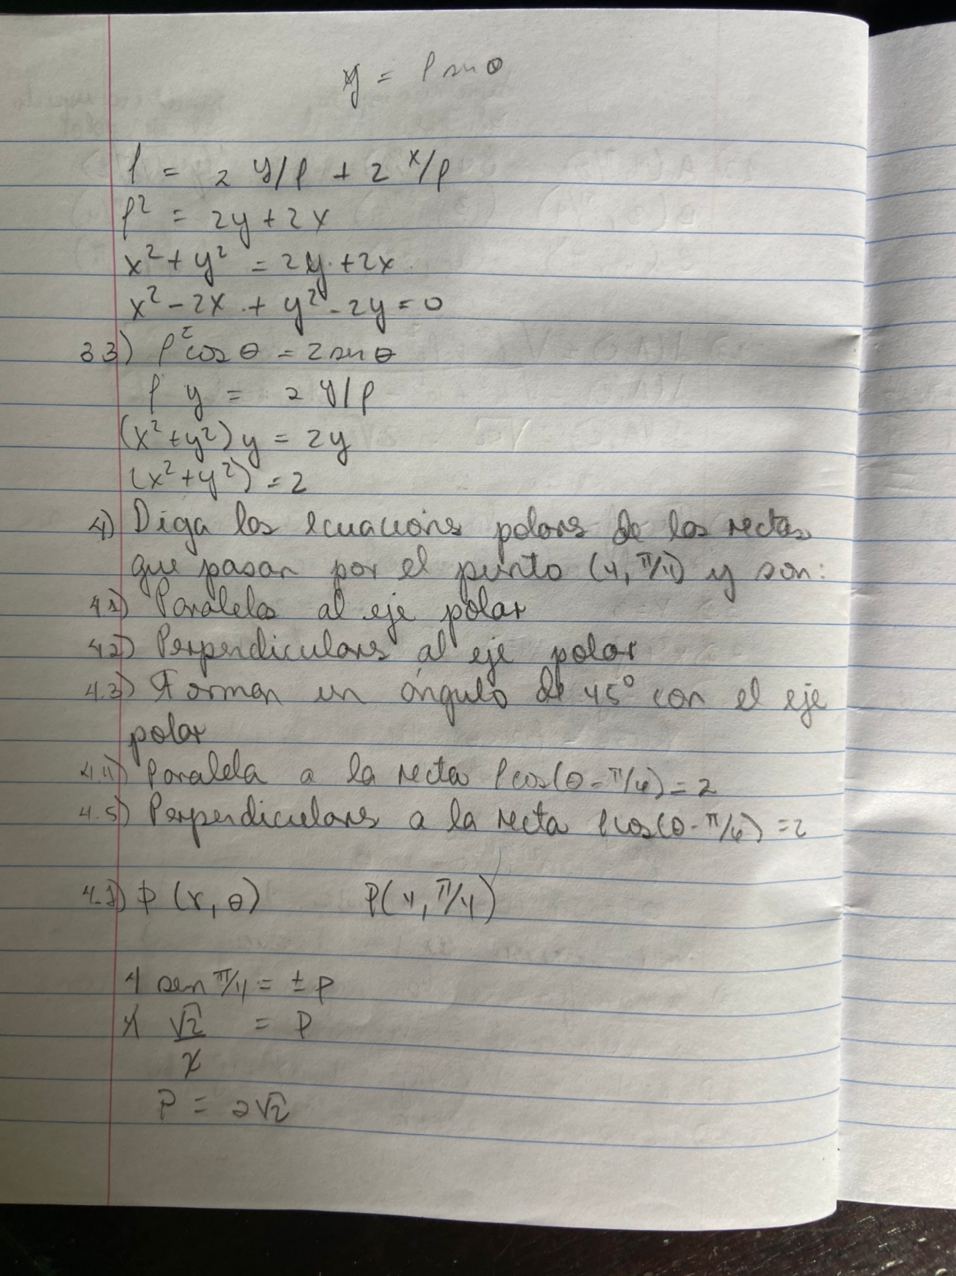 y = ρ sen θ
ρ = 2 y/ρ + 2 x/ρ
ρ² = 2y + 2x
x² + y² = 2y + 2x
x² - 2x + y² - 2y = 0
3.3) ρ² cos θ = 2 sen θ
ρ y = 2 y/ρ
(x² + y²) y = 2y
(x² + y²) = 2
4) Diga las ecuacions polars de las rectas
que pasan por el punto (4, π/4) y son:
4.1) Paralelo al eje polar
4.2) Perpendiculars al eje polar
4.3) Forman un ángulo de 45° con el eje
polar
4.4) Paralela a la recta ρcos(θ-π/6)=2
4.5) Perpendiculars a la recta ρcos(θ-π/6)=2
4.1) P (r, θ) P(4, π/4)
4 sen π/4 = ± P
4 √2/2 = P
P = 2√2